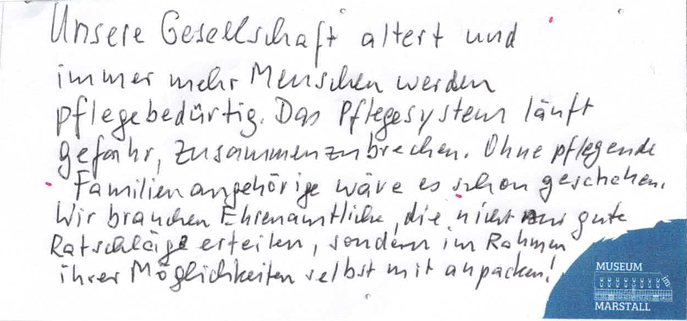 Unsere Gesellschaft altert und
immer mehr Menschen werden
pflegebedürtig. Das Pflegesystem läuft
gefahr, zusammenzubrechen. Ohne pflegende
Familienangehörige wäre es schon geschehen.
Wir brauchen Ehrenamtliche, die nicht nur gute
Ratschläge erteilen, sondern im Rahmen
ihrer Möglichkeiten selbst mit anpacken!
MUSEUM
im
MARSTALL